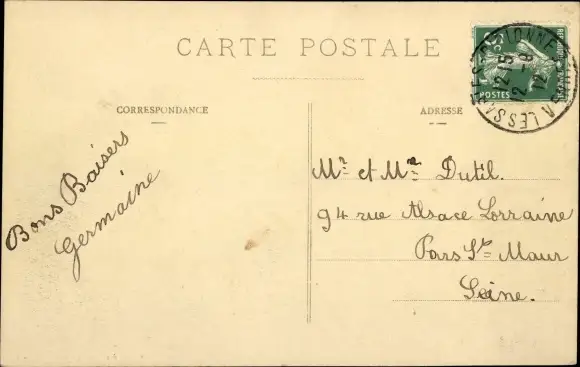 CARTE POSTALE
CORRESPONDANCE
ADRESSE
Bons Baisers
Germaine
Mr et Mme Dutil.
94 rue Alsace Lorraine
Parc St= Maur
Seine.
POSTES
12 15
2 - 8
12